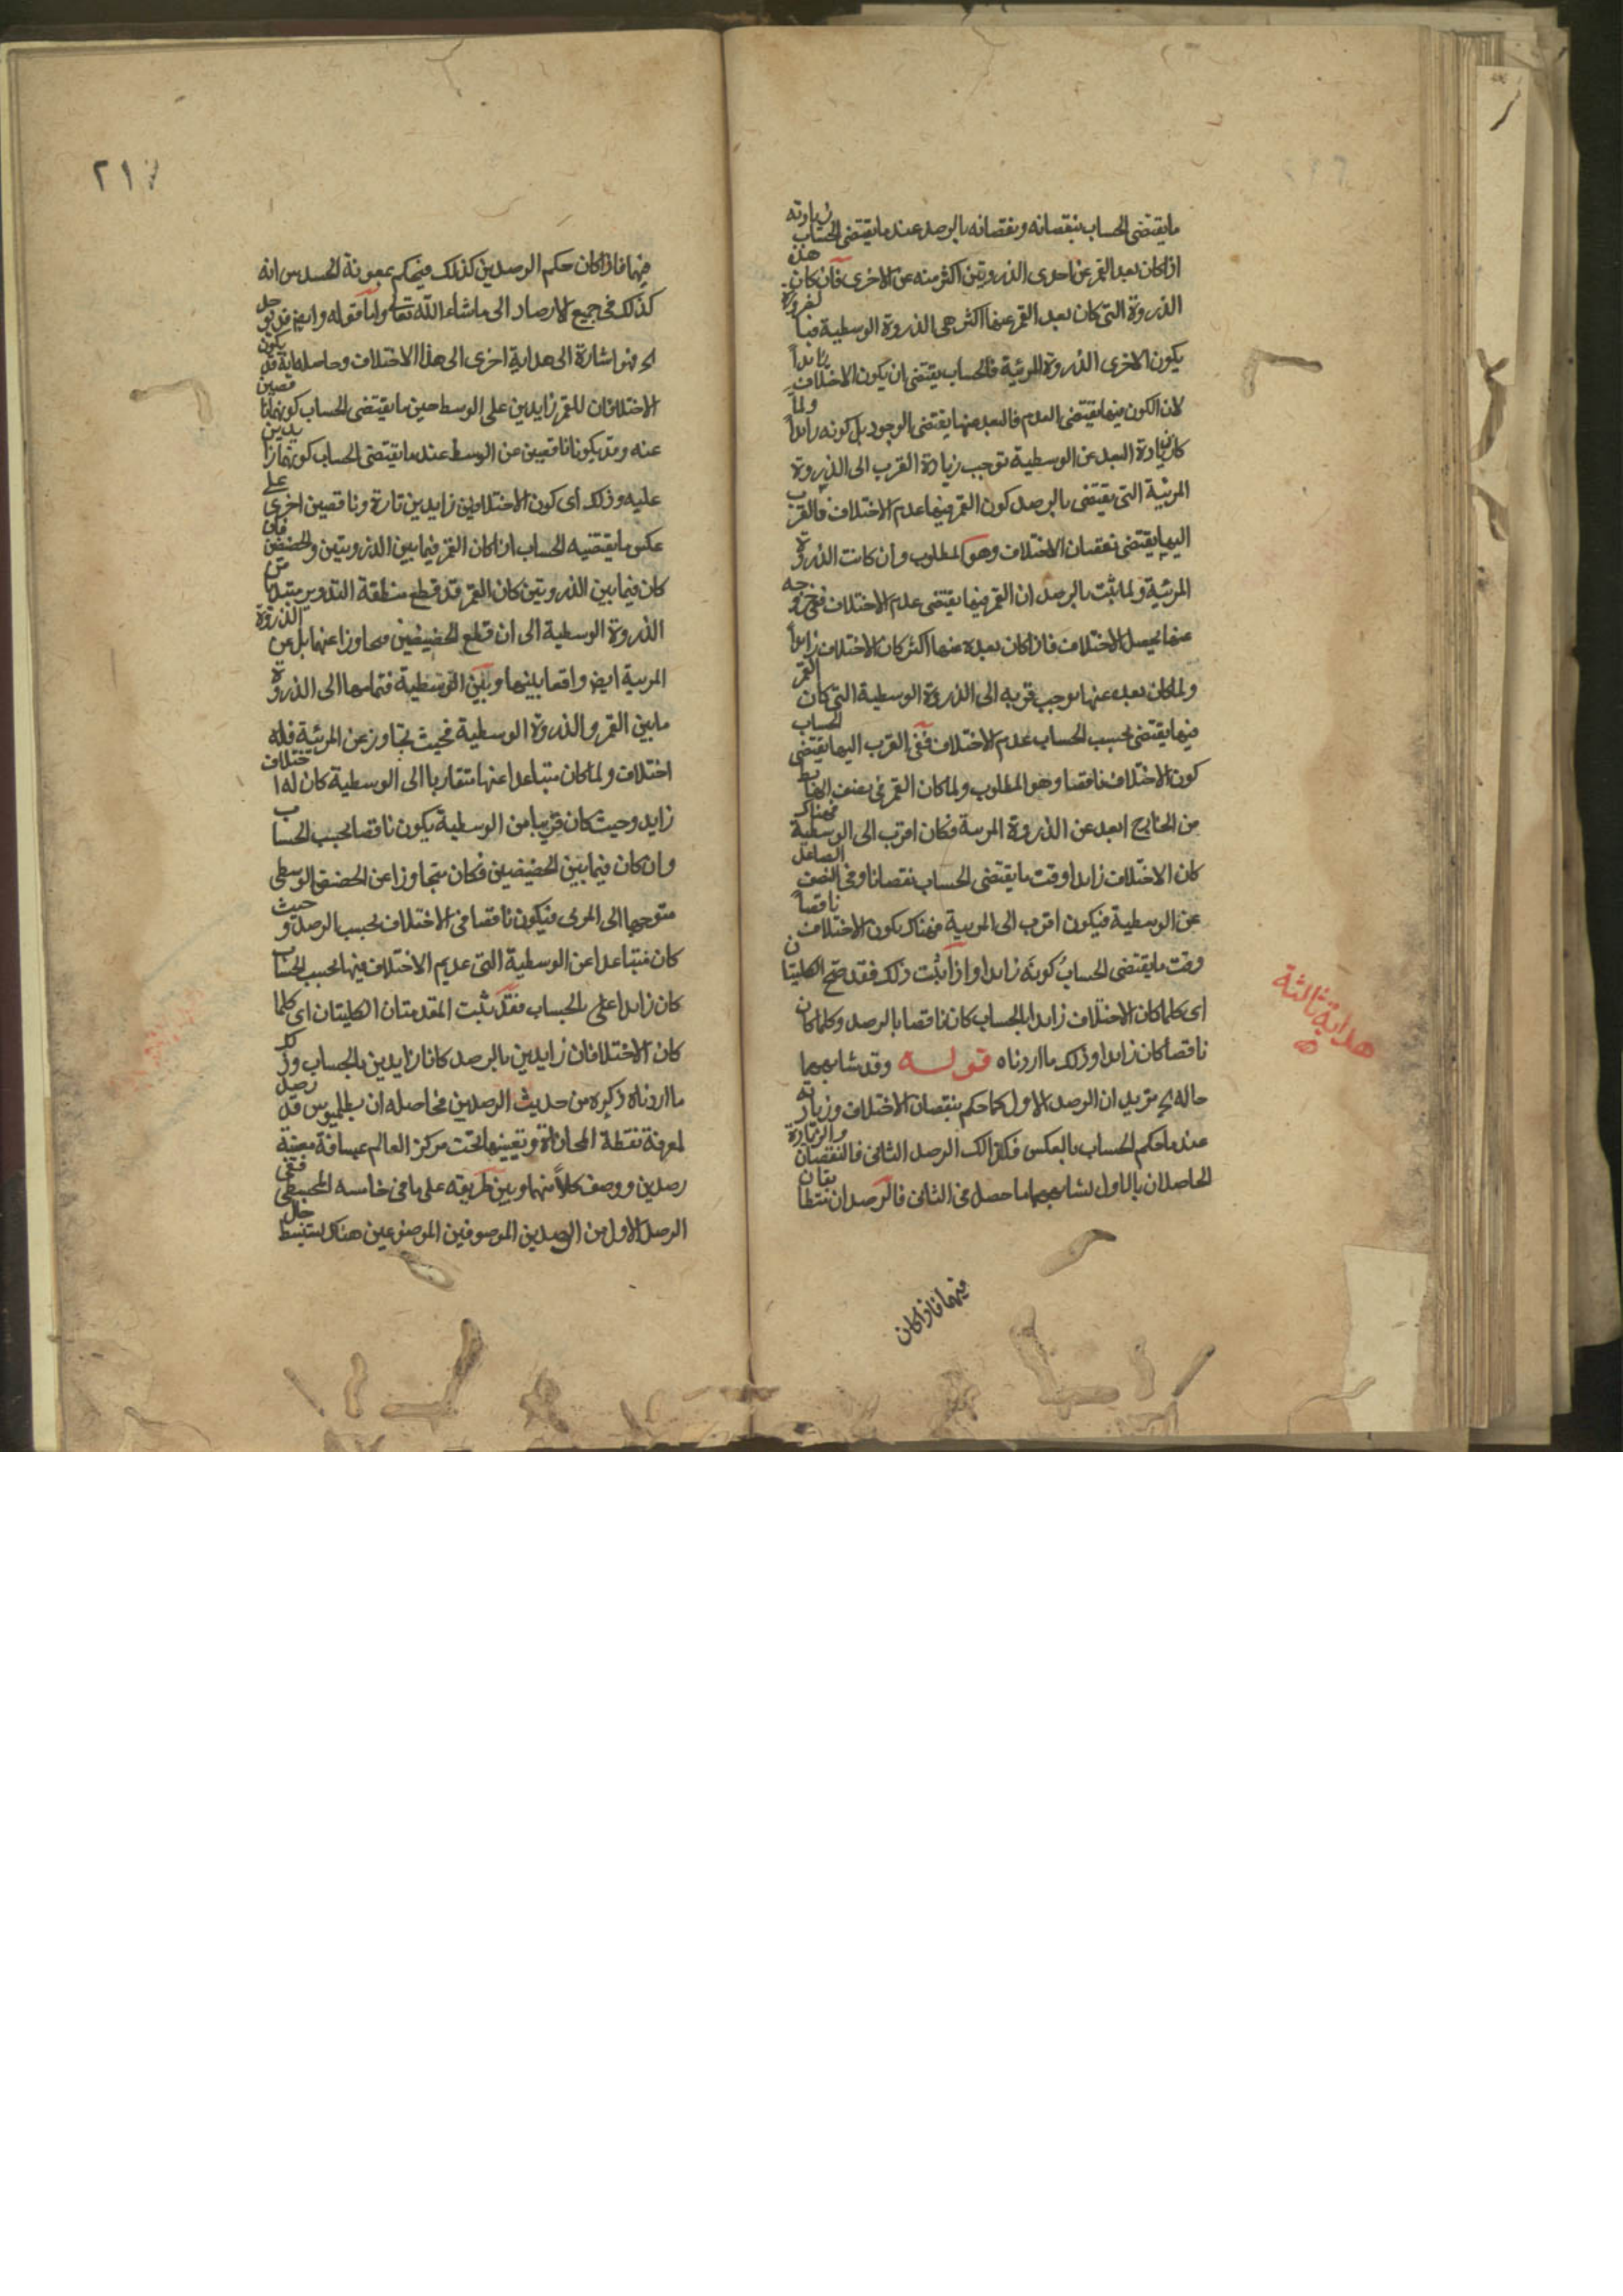 ما يقتضى الحساب بنقصانه ونقصانه بالرصد عند ما يقتضى الحساب زيادته
اذا كان بعد القمر عن احدى الذروتين اكثر منه عن الاخرى فان كان هذه
الذروة التى كان بعد القمر عنها اكثر هى الذروة الوسطية فبالضرورة
يكون الاخرى الذروة المرئية فالحساب يقتضى ان يكون الاختلاف زايداً
لان الكون فيها يقتضى العدم فالبعد عنها يقتضى الوجود بل كونه زايداً ولما
كان زيادة البعد عن الوسطية توجب زيادة القرب الى الذروة
المرئية التى يقتضى بالرصد كون القمر فيها عدم الاختلاف فالقرب
اليها يقتضى نقصان الاختلاف وهو المطلوب وان كانت الذروة
المرئية ولما ثبت بالرصد ان القمر فيها يقتضى عدم الاختلاف ففى خروجه
عنها يحصل الاختلاف فاذا كان بعده عنها اكثر كان الاختلاف زايداً
ولما كان بعده عنها يوجب قربه الى الذروة الوسطية التى كان القمر
فيها يقتضى بحسب الحساب عدم الاختلاف ففى القرب اليها يقتضى الحساب
كون الاختلاف ناقصا وهو المطلوب ولما كان القمر فى نصف الهابط
من الخارج ابعد عن الذروة المرئية فكان اقرب الى الوسطية فهناك
كان الاختلاف زايدا وقت ما يقتضى الحساب نقصانا وفى النصف الصاعد
عن الوسطية فيكون اقرب الى المرئية فهناك يكون الاختلاف ناقصاً
وقت ما يقتضى الحساب كونه زايدا واذا ثبت ذلك فقد صح الكليتان
اى كلما كان الاختلاف زايدا بالحساب كان ناقصا بالرصد وكلما كان
ناقصا كان زايدا وذلك ما اردناه قوله وقد شابههما
حاله الخ يريد ان الرصد الاول كما حكم بنقصان الاختلاف وزيادته
عند ما حكم الحساب بالعكس فكذالك الرصد الثانى فالنقصان والزيادة
الحاصلان بالاول يشابههما ما حصل فى الثانى فالرصدان يتطابقان
فيهما فاذا كان
هداية ثالثة
٢١٧
فيهما فاذا كان حكم الرصدين كذلك فيحكم بمعونة الحدس انه
كذلك فى جميع الارصاد الى ما شاء الله تعالى واما قوله وايضا قد يوجد
الخ فهو اشارة الى هداية اخرى الى هذا الاختلاف وحاصلها انه قد يكون
الاختلافان للقمر زايدين على الوسط حين ما يقتضى الحساب كونهما ناقصين
عنه وقد يكونا ناقصين عن الوسط عند ما يقتضى الحساب كونهما زايدين
عليه وذلك اى كون الاختلافين زايدين تارة وناقصين اخرى على
عكس ما يقتضيه الحساب اذا كان القمر فيما بين الذروتين والحضيضين فان
كان فيما بين الذروتين كان القمر قد قطع منطقة التدوير مبتديا من
الذروة الوسطية الى ان قطع الحضيضين متجاوزا عنهما بل عن الذروة
المرئية ايضا واقعا بينها وبين الوسطية فتمامها الى الذروة
ما بين القمر والذروة الوسطية فحيث تجاوز عن المرئية فله
اختلاف ولما كان متباعدا عنها متقاربا الى الوسطية كان له اختلاف
زايد وحيث كان قريبا من الوسطية يكون ناقصا بحسب الحساب
وان كان فيما بين الحضيضين فكان متجاوزا عن الحضيض الوسطى
متوجها الى المرئى فيكون ناقصا فى الاختلاف بحسب الرصد وحيث
كان متباعدا عن الوسطية التى عديم الاختلاف فيها بحسب الحساب
كان زايدا على بالحساب فقد ثبت المقدمتان الكليتان اى كلما
كان الاختلافان زايدين بالرصد كانا زايدين بالحساب وذلك
ما اردناه ذكره من حديث الرصدين فحاصله ان بطلميوس قد رصد
لمعرفة نقطة المحاذاة وتعيينها تحت مركز العالم بمسافة معينة
رصدين ووصف كلاً منهما وبين طريقه على ما فى خامسه المجسطى ففى
الرصد الاول من الرصدين الموصوفين الموضوعين هناك يستنبط حال